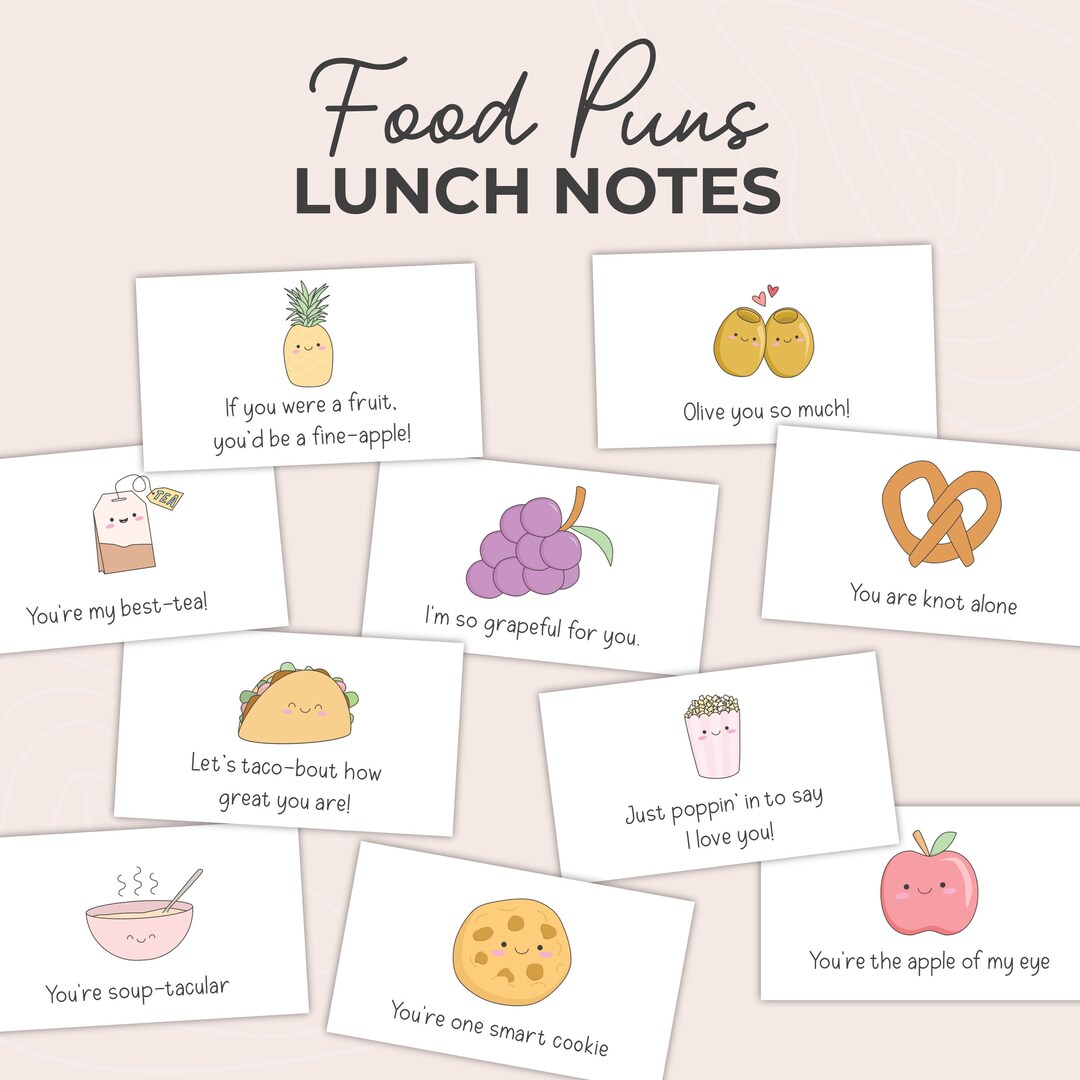 Food Puns
LUNCH NOTES
If you were a fruit,
you'd be a fine-apple!
Olive you so much!
TEA
You're my best-tea!
I'm so grapeful for you.
You are knot alone
Let's taco-bout how
great you are!
Just poppin' in to say
I love you!
You're soup-tacular
You're one smart cookie
You're the apple of my eye